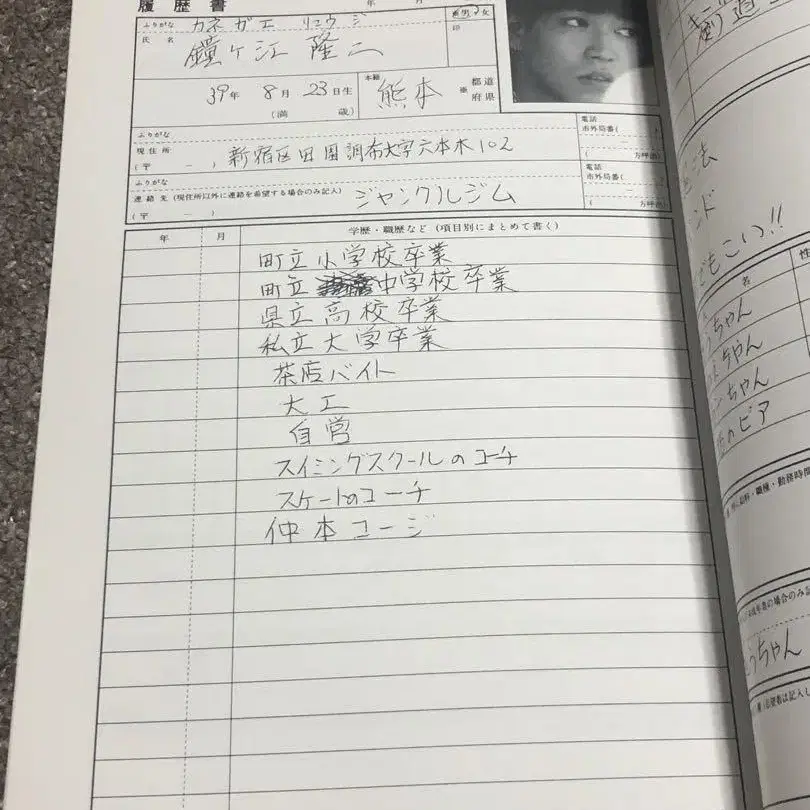 履歴書
年 月
ふりがな カネガエ リュウジ
氏名 鐘ヶ江 隆二
男 女
印
39年 8月 23日生
(満 歳)
本籍 熊本 都道府県
ふりがな
現住所 新宿区田園調布大字六本木102
(〒 ー )
電話
市外局番( )
( 方呼出)
ふりがな
連絡先 (現住所以外に連絡を希望する場合のみ記入) ジャングルジム
(〒 ー )
電話
市外局番( )
( 方呼出)
年 月 学歴・職歴など (項目別にまとめて書く)
町立小学校卒業
町立 中学校卒業
県立高校卒業
私立大学卒業
茶店バイト
大工
自営
スイミングスクールのコーチ
スケートのコーチ
仲本コージ
法
ンド
でもこい!!
名 性
ちゃん
ちゃん
ーちゃん
のピア
給料・職種・勤務時間
未成年者の場合のみ記
ちゃん
希望者は記入し